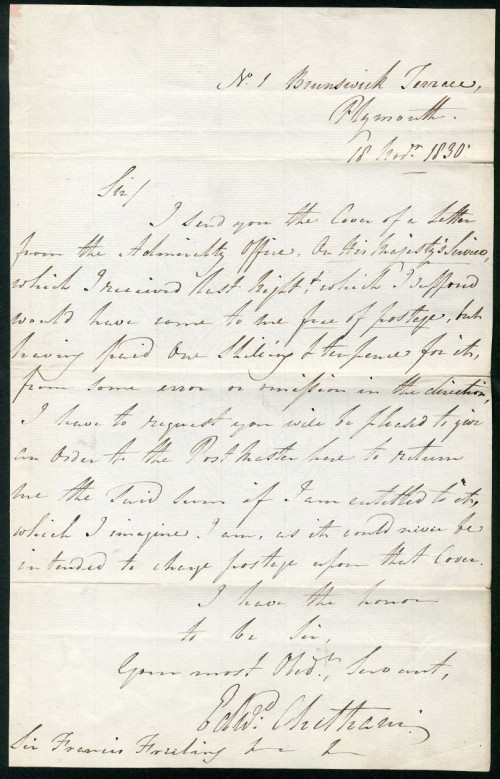 No. 1 Brunswick Terrace,
Plymouth.
18 Novr. 1830.
Sir/
I send you the Cover of a Letter
from the Admiralty Office, On His Majesty's Service,
which I received last Night & which I suppos'd
would have come to me free of postage, but
having paid One Shilling & tenpence for it,
from some error or omission in the direction,
I have to request you will be pleased to give
an Order to the Post Master here to return
me the said sum if I am entitled to it,
which I imagine I am, as it could never be
intended to charge postage upon that Cover.
I have the honor
to be Sir,
Your most Obedt., Servant,
Edwd. Chetham.
Sir Francis Freeling